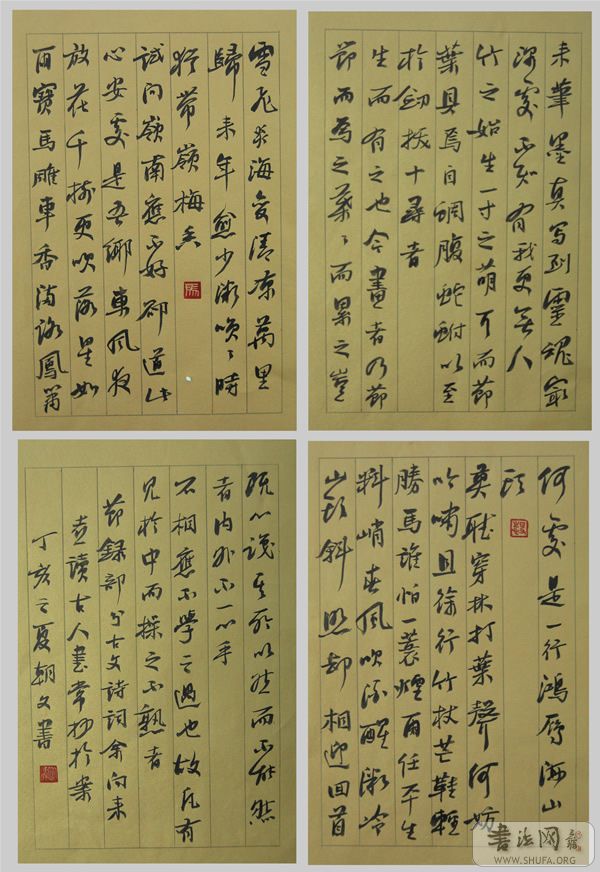 来筆墨真写到靈魂最
深處不知有我更無人
竹之始生一寸之萌耳而節
葉具焉自蜩腹蛇蚹以至
於劍拔十尋者
生而有之也今畫者乃節
節而為之葉〻而累之豈
雪飛炎海變清凉萬里
歸来年愈少微笑〻時
猶帶嶺梅香
試問嶺南應不好却道此
心安處是吾鄉東風夜
放花千樹更吹落星如
雨寶馬雕車香滿路鳳簫
何處是一行鴻雁海山
頭
莫聽穿林打葉聲何妨
吟嘯且徐行竹杖芒鞋輕
勝馬誰怕一蓑煙雨任平生
料峭春風吹酒醒微冷
山頭斜照却相迎回首
既心識其所以然而不能然
者内外不一心手
不相應不學之過也故凡有
見於中而操之不熟者
節錄部分古文詩詞余向来
喜讀古人書常抄於案
丁亥之夏朝文書
書法网
WWW.SHUFA.ORG